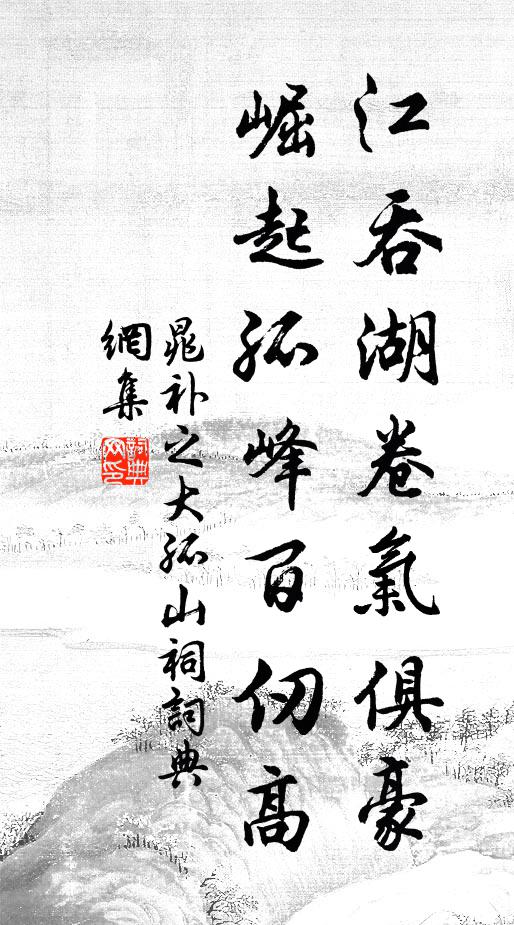 江吞湖卷氣俱豪
崛起孤峰百仞高
晁补之大孤山祠詞典
網集
詞典网印